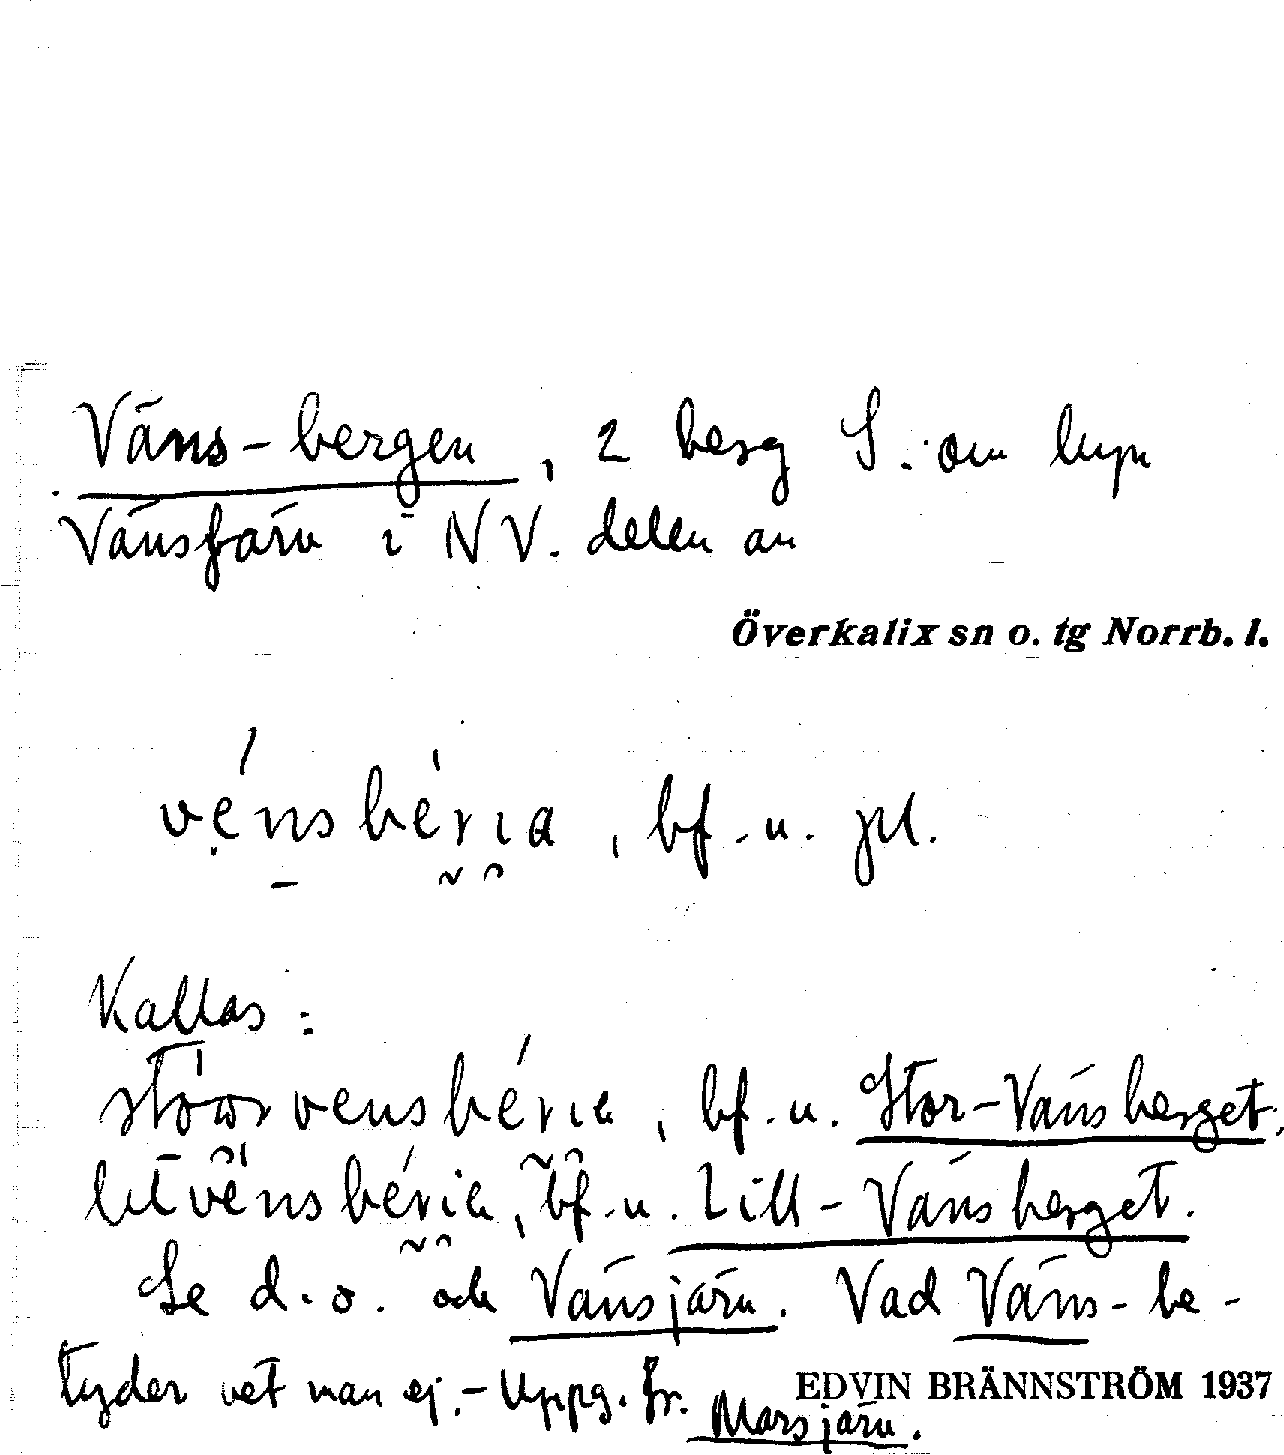 Väns-bergen, 2 berg S. om byn
Vänsjärv i NV. delen av
Överkalix sn o. tg Norrb. l.
vénsbérıa, bf. n. pl.
Kallas:
bf. n. Stor-Vänsberget,
bf. n. Lill-Vänsberget.
Se d. o. och Vänsjärv. Vad Väns- be-
tyder vet man ej. - Uppg. fr. Marsjärv.
EDVIN BRÄNNSTRÖM 1937